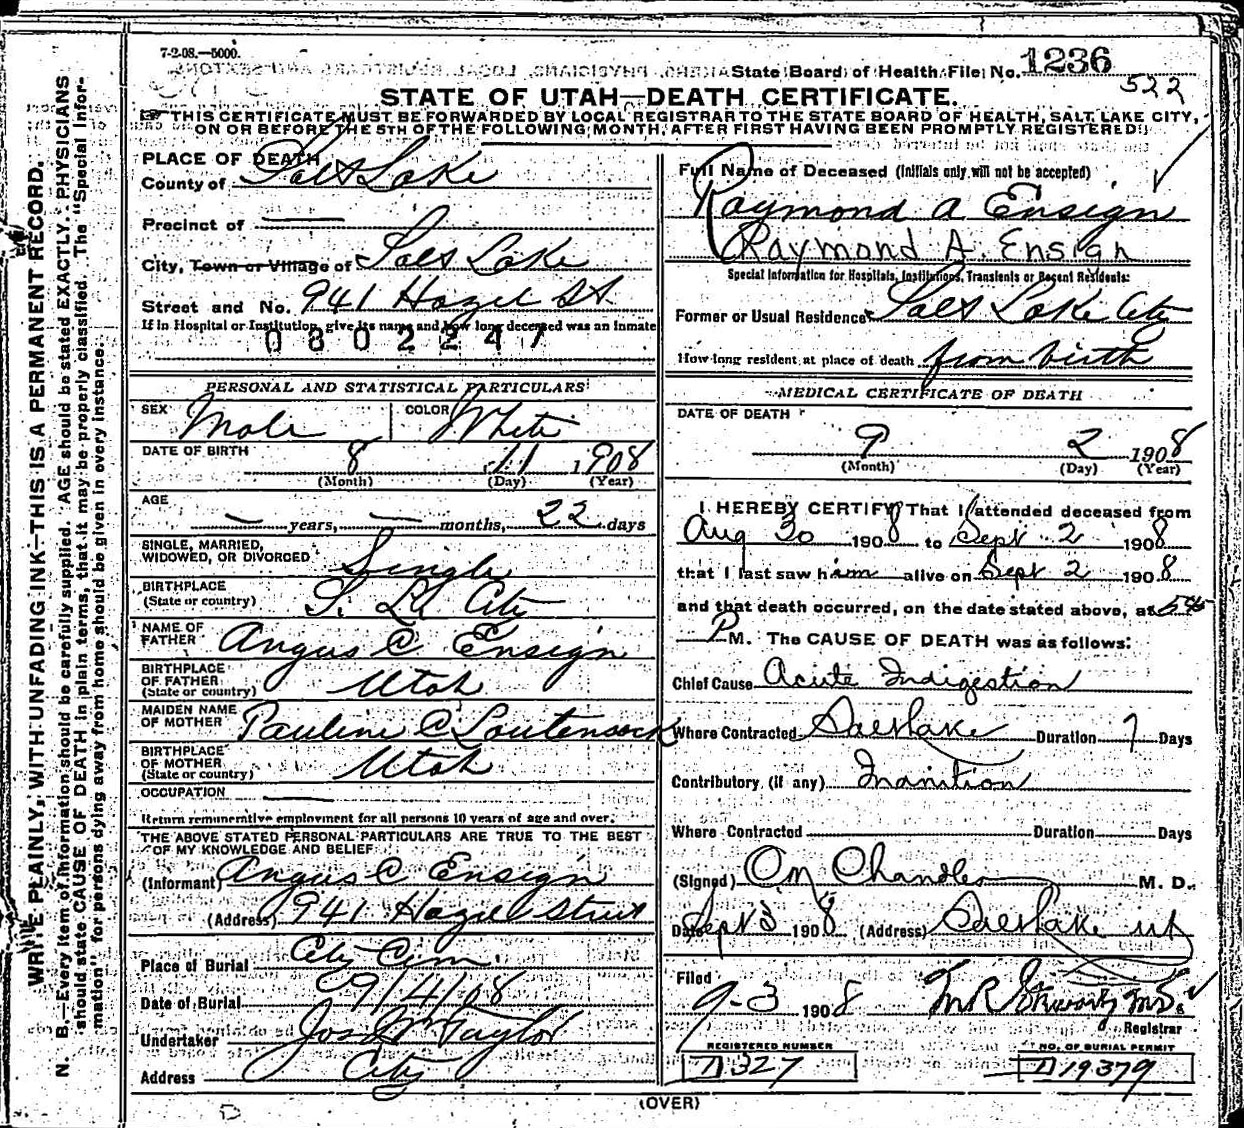 7-2-08.—5000.
State Board of Health File No. 1236
522
STATE OF UTAH—DEATH CERTIFICATE.
THIS CERTIFICATE MUST BE FORWARDED BY LOCAL REGISTRAR TO THE STATE BOARD OF HEALTH, SALT LAKE CITY,
ON OR BEFORE THE 5TH OF THE FOLLOWING MONTH, AFTER FIRST HAVING BEEN PROMPTLY REGISTERED.
WRITE PLAINLY, WITH UNFADING INK—THIS IS A PERMANENT RECORD.
N. B.—Every item of information should be carefully supplied. AGE should be stated EXACTLY. PHYSICIANS
should state CAUSE OF DEATH in plain terms, that it may be properly classified. The "Special Infor-
mation" for persons dying away from home should be given in every instance.
PLACE OF DEATH
County of Salt Lake
Precinct of
City, Town or Village of Salt Lake
Street and No. 941 Hazel St
If in Hospital or Institution, give its name and how long deceased was an inmate
0302247
PERSONAL AND STATISTICAL PARTICULARS
SEX Male COLOR White
DATE OF BIRTH 8 11 1908
(Month) (Day) (Year)
AGE — years, — months, 22 days
SINGLE, MARRIED,
WIDOWED, OR DIVORCED Single
BIRTHPLACE
(State or country) S. L. City
NAME OF
FATHER Angus C Ensign
BIRTHPLACE
OF FATHER
(State or country) Utah
MAIDEN NAME
OF MOTHER Pauline C Loutensock
BIRTHPLACE
OF MOTHER
(State or country) Utah
OCCUPATION
Return remunerative employment for all persons 10 years of age and over.
THE ABOVE STATED PERSONAL PARTICULARS ARE TRUE TO THE BEST
OF MY KNOWLEDGE AND BELIEF
(Informant) Angus C Ensign
(Address) 941 Hazel Street
Place of Burial City Cem.
Date of Burial 9/4/08
Undertaker Jos Wm Taylor
Address City
Full Name of Deceased (Initials only will not be accepted)
Raymond A Ensign
Raymond A. Ensign
Special Information for Hospitals, Institutions, Transients or Recent Residents:
Former or Usual Residence Salt Lake City
How long resident at place of death from birth
MEDICAL CERTIFICATE OF DEATH
DATE OF DEATH
9 2 1908
(Month) (Day) (Year)
I HEREBY CERTIFY That I attended deceased from
Aug 30 1908 to Sept 2 1908
that I last saw him alive on Sept 2 1908
and that death occurred, on the date stated above, at
P M. The CAUSE OF DEATH was as follows:
Chief Cause Acute Indigestion
Where Contracted Salt Lake Duration 7 Days
Contributory (if any) Inanition
Where Contracted Duration Days
(Signed) Chandler M. D.
Date Sept 3 1908 (Address) Salt Lake Ut
Filed
9-3 1908
Registrar
REGISTERED NUMBER NO. OF BURIAL PERMIT
D 327 D 19379
(OVER)
D